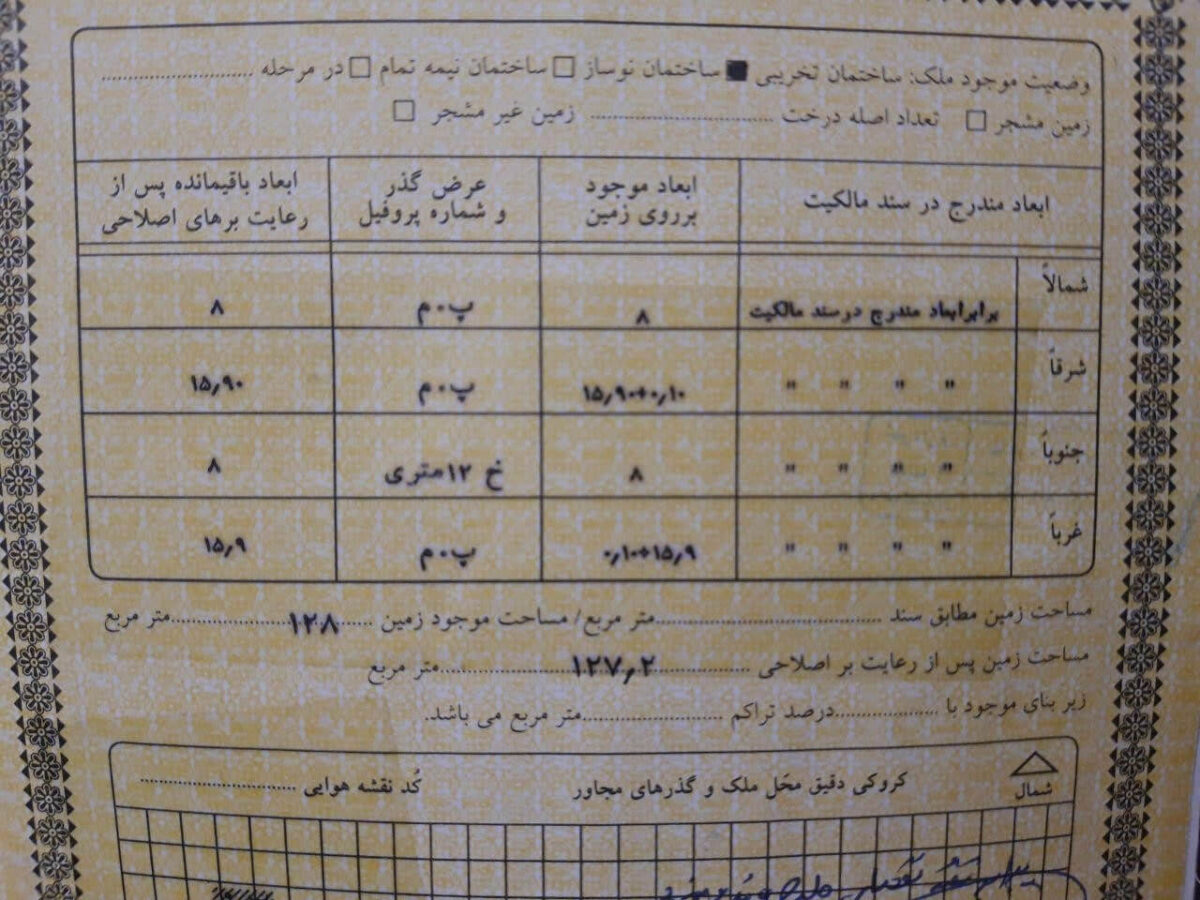 وضعیت موجود ملک: ساختمان تخریبی ■ ساختمان نوساز □ ساختمان نیمه تمام □ در مرحله ..............................
زمین مشجر □ تعداد اصله درخت .............................. زمین غیر مشجر □
ابعاد مندرج در سند مالکیت ابعاد موجود برروی زمین عرض گذر و شماره پروفیل ابعاد باقیمانده پس از رعایت برهای اصلاحی
شمالاً برابرابعاد مندرج درسند مالکیت ۸ پ.م ۸
شرقاً " " " " ۱۵٫۹۰+۰٫۱۰ پ.م ۱۵٫۹۰
جنوباً " " " " ۸ خ ۱۲متری ۸
غرباً " " " " ۰٫۱۰+۱۵٫۹ پ.م ۱۵٫۹
مساحت زمین مطابق سند ..............................متر مربع/ مساحت موجود زمین ..........۱۲۸..........متر مربع
مساحت زمین پس از رعایت بر اصلاحی ..........۱۲۷٫۲..........متر مربع
زیر بنای موجود با ....................درصد تراکم ....................متر مربع می باشد.
شمال
کروکی دقیق محّل ملک و گذرهای مجاور
کُد نقشه هوایی ..............................